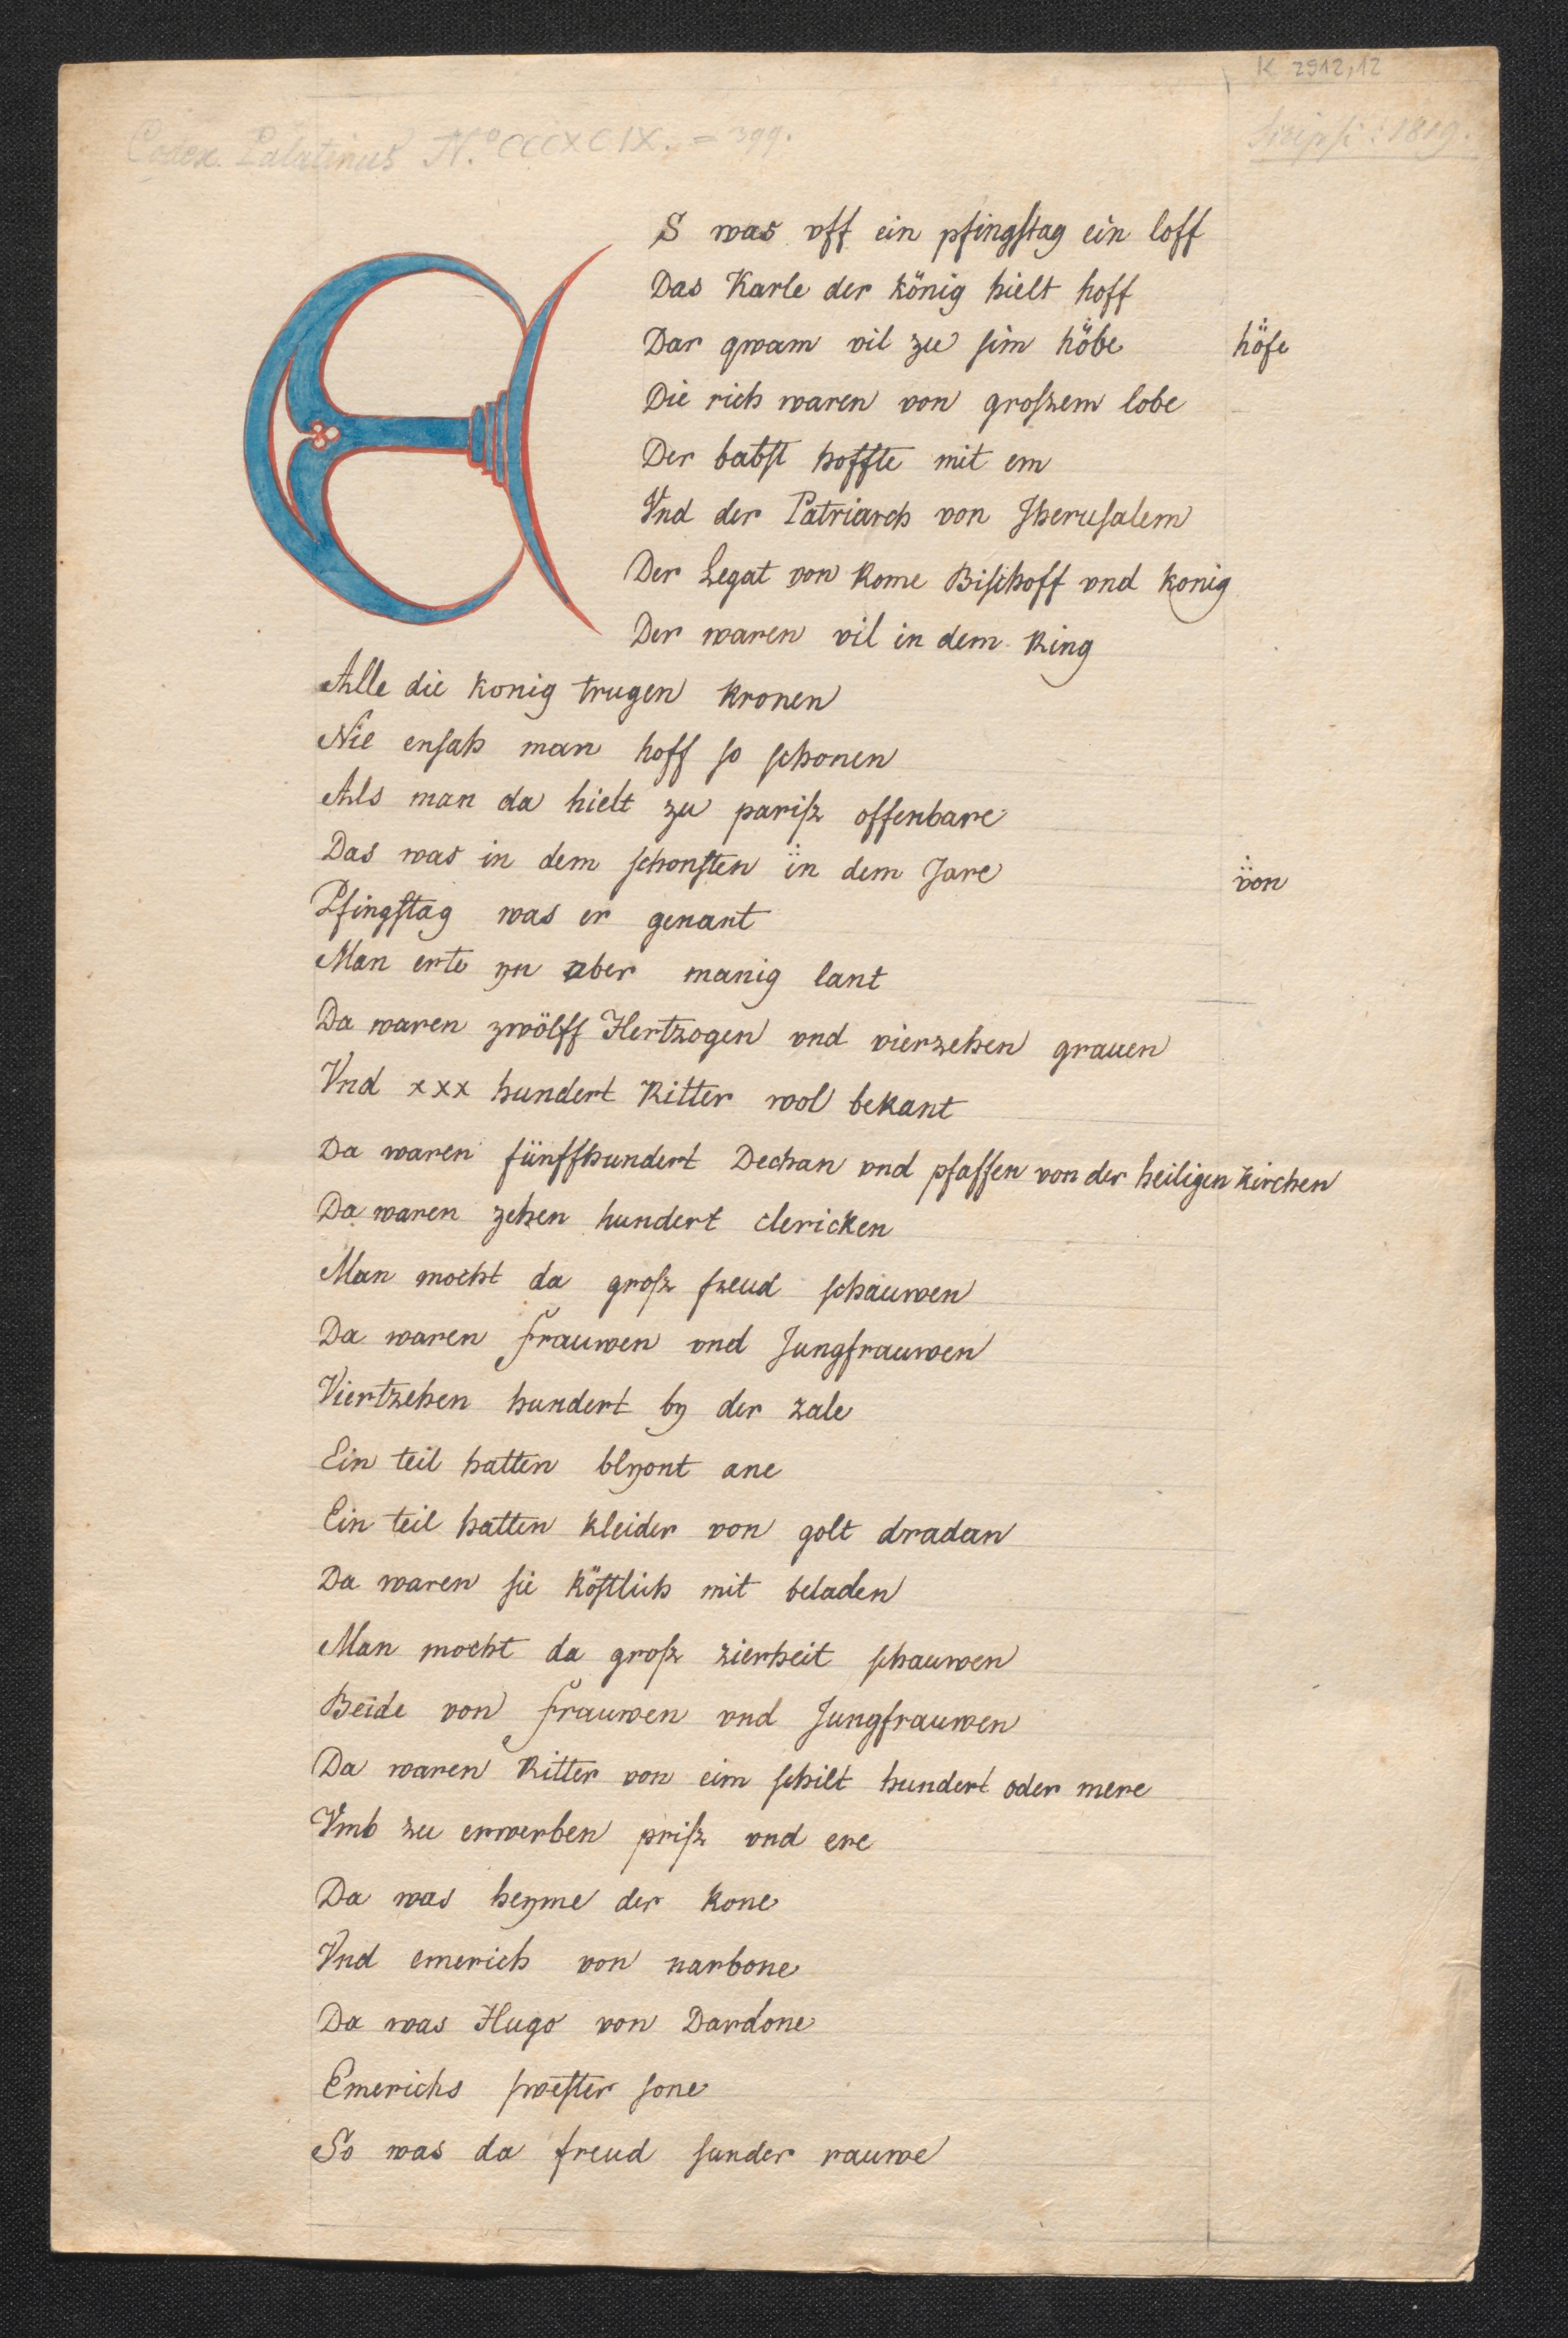 K 2912,12
Codex Palatinus N.º CCCXCIX. = 399.
Scripsi: 1819.
ES was vff ein pfingſtag ein loff
Das Karle der könig hielt hoff
Dar qwam vil zu ſim höbe höfe
Die rich waren von groſzem lobe
Der babſt hoffte mit em
Vnd der Patriarch von Jheruſalem
Der Legat von Rome Biſchoff vnd konig
Der waren vil in dem Ring
Alle die konig trugen kronen
Nie enſah man hoff ſo ſchonen
Als man da hielt zu pariſz offenbare
Das was in dem ſchonſten in dem Jare von
Pfingſtag was er genant
Man erte yn aber manig lant
Da waren zwölff Hertzogen vnd vierzehen grauen
Vnd xxx hundert Ritter wol bekant
Da waren fünffhundert Dechan vnd pfaffen von der heiligen kirchen
Da waren zehen hundert clericken
Man mocht da groſz freud ſchauwen
Da waren frauwen vnd Jungfrauwen
Viertzehen hundert by der zale
Ein teil hatten blyont ane
Ein teil hatten kleider von golt dradan
Da waren ſie köſtlich mit beladen
Man mocht da groſz zierheit ſchauwen
Beide von frauwen vnd Jungfrauwen
Da waren Ritter von eim ſchilt hundert oder mere
Vmb zu erwerben priſz vnd ere
Da was heyme der kone
Vnd emerich von narbone
Da was Hugo von Dardone
Emerichs ſweſter ſone
So was da freud ſunder rauwe